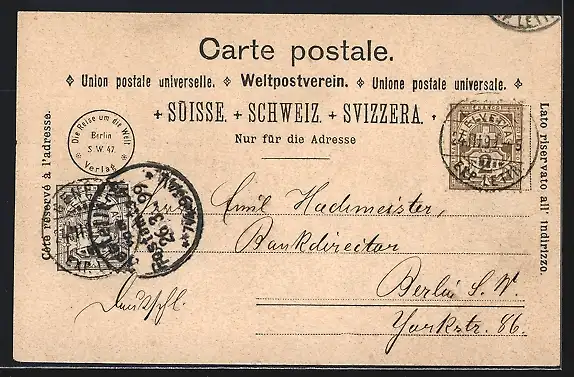 Carte postale.
Union postale universelle. Weltpostverein. Unione postale universale.
+ SÜISSE. + SCHWEIZ. + SVIZZERA. +
Nur für die Adresse
Côté réservé à l'adresse.
Lato riservato all' indirizzo.
Die Reise um die Welt
Berlin
S.W. 47.
Verlag
Emil Hachmeister,
Bankdirector
Berlin S. W.
Yorkstr. 66.
Deutschl.